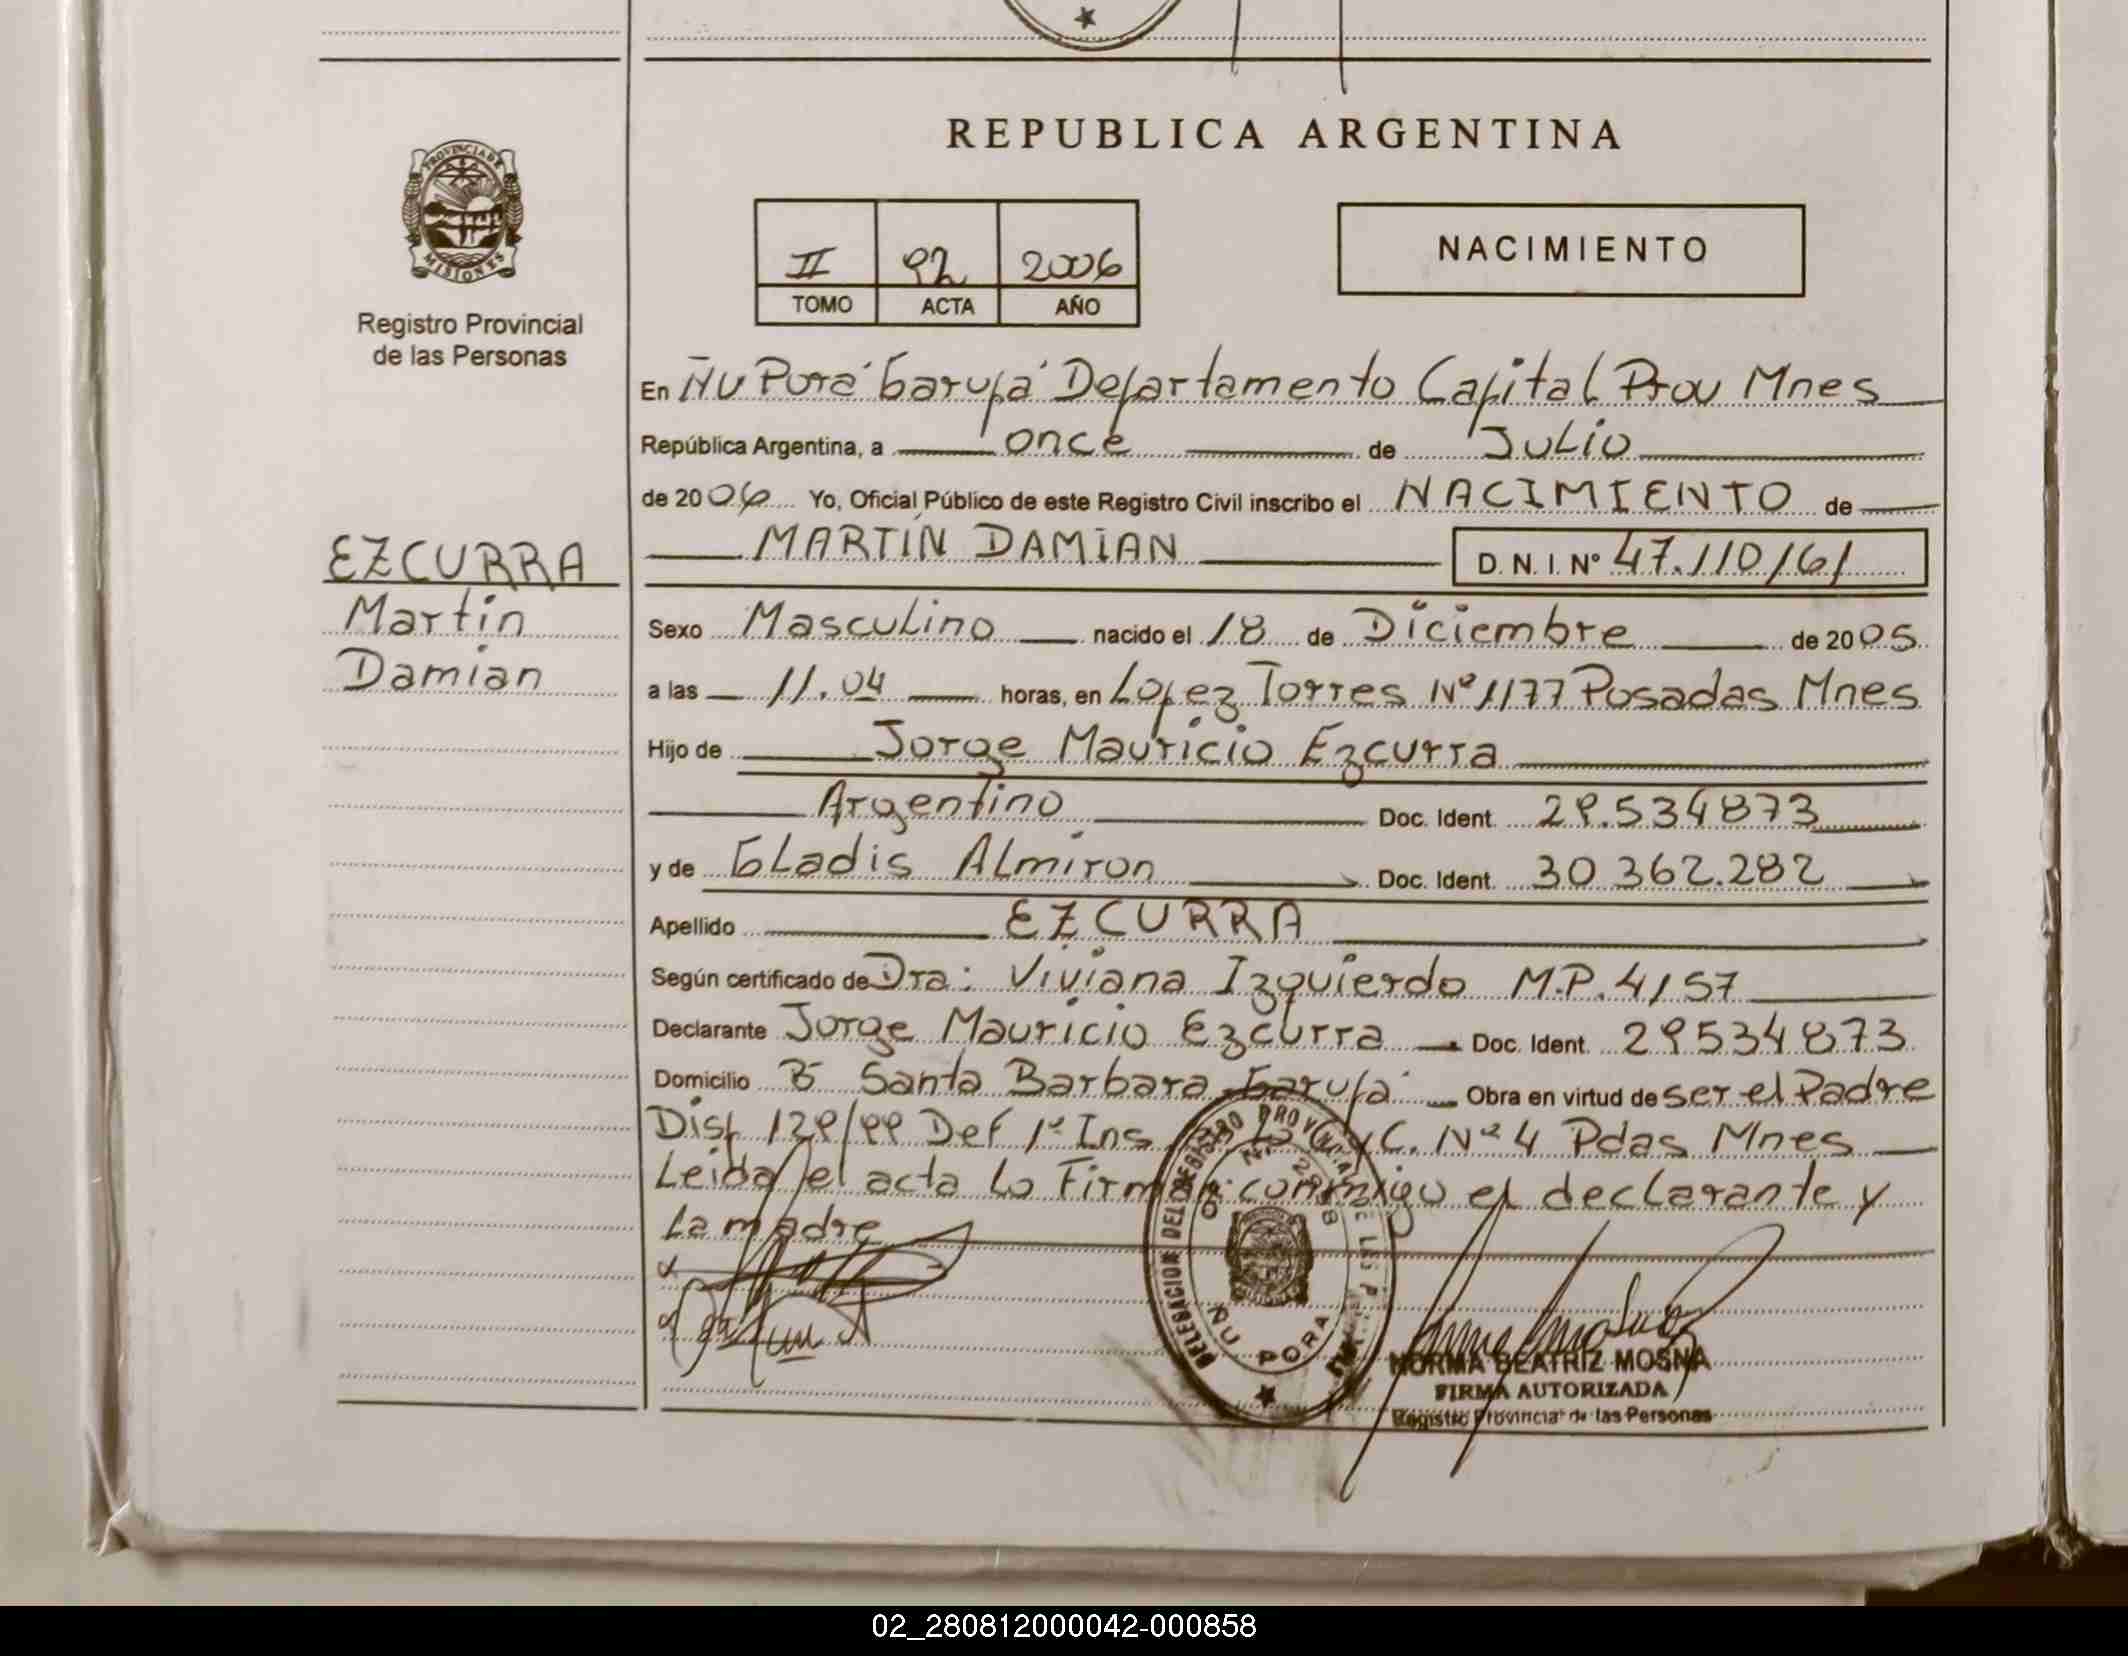 REPUBLICA ARGENTINA
PROVINCIA DE
MISIONES
Registro Provincial
de las Personas
II 92 2006
TOMO ACTA AÑO
NACIMIENTO
En Ñu Porá Garupá Departamento Capital Prov Mnes
República Argentina, a once de Julio
de 2006 Yo, Oficial Público de este Registro Civil inscribo el NACIMIENTO de
MARTÍN DAMIAN D. N. I. Nº 47.110161
EZCURRA
Martin
Damian
Sexo Masculino nacido el 18 de Diciembre de 2005
a las 11.04 horas, en Lopez Torres Nº 1177 Posadas Mnes
Hijo de Jorge Mauricio Ezcurra
Argentino Doc. Ident. 29.534873
y de Gladis Almiron Doc. Ident. 30 362.282
Apellido EZCURRA
Según certificado de Dra: Viviana Izquierdo M.P. 4157
Declarante Jorge Mauricio Ezcurra Doc. Ident. 29534873
Domicilio Bº Santa Barbara Garupá Obra en virtud de ser el Padre
Disp 129/99 Def 1º Ins C. Nº 4 Pdas Mnes
Leida el acta lo Firman conmigo el declarante y
la madre
ÑU PORA
NORMA BEATRIZ MOSNA
FIRMA AUTORIZADA
Registro Provincial de las Personas
02_280812000042-000858